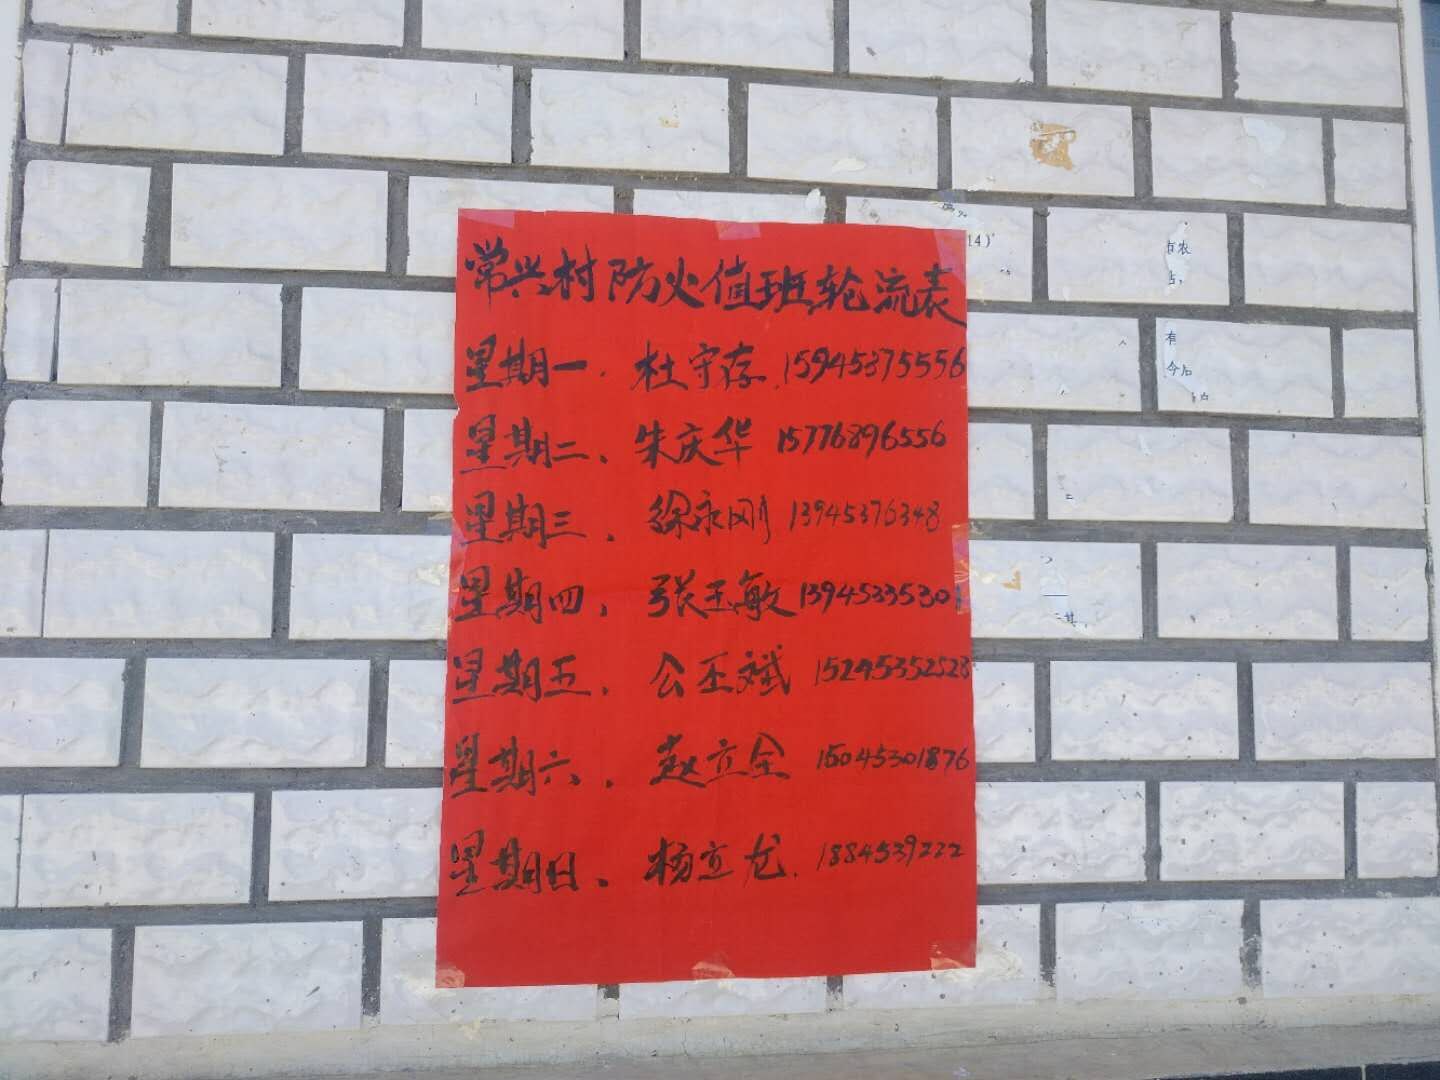 常兴村防火值班轮流表
星期一、杜守存.15945375556
星期二、朱庆华 15776896556
星期三、徐永刚 13945376348
星期四、张玉敏 13945335301
星期五、公丕斌 15245352528
星期六、赵立全 15045301876
星期日、杨立龙.1884539222
14)'
有农
站,
有
今后